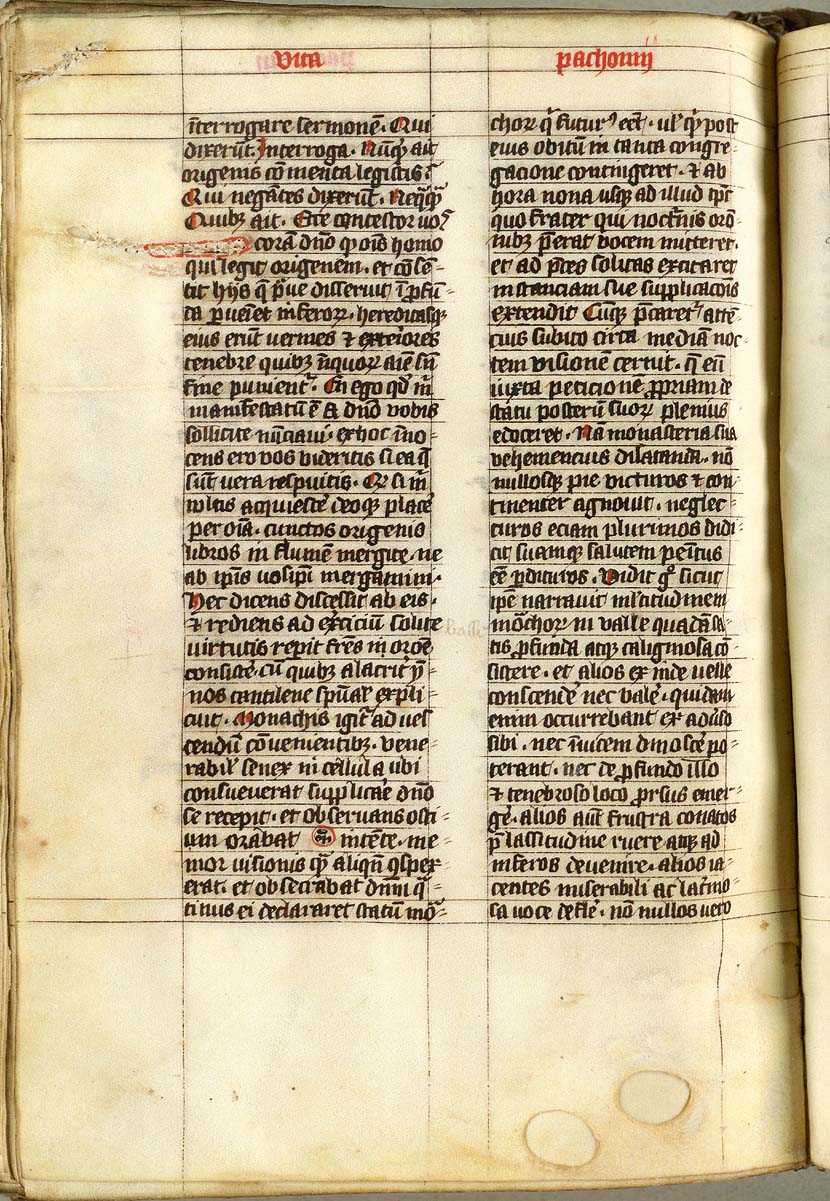 vita
pachomii
īterrogare sermonē. Qui
dixerūt. Interroga. Nūqͥd ait
origenis cōmenta legistis?
Qui negātes dixerūt. Neqͣqͣ
Quibꝫ ait. Ecce contestor uos
corā dn̄o qͥ oīs homo
qui legit origenem. et cōsē-
tit hijs q̄ p̄ue disseruit ī ꝓfū-
da ꝑueniet inferoꝝ. hereditasqꝫ
eius erūt vermes ⁊ exteriores
tenebre quibꝫ īiquoꝝ aīe sīn
fine punient᷑. En ego qd̓ m̄
manifestatū ē a dn̄o vobis
sollicite nūciaui. ex hoc īno-
cens ero vos videritis si ea q̄
sūt vera respuitis. Qͦ si m̄
wltis acquiesce͛ deoqꝫ place͛
per oīa. cunctos origenis
libros in flumē mergite. ne
ab ip̄is uosip̄i mergamini.
Hec dicens discessit ab eis.
⁊ rediens ad exͨiciū solite
virtutis repit fr̄es in orōe
consiste͛. cū quibꝫ alacrit͛ ym̄
nos cantilene sp̄ual̓ expli
cuit. Monachis igit᷑ ad ues
cendū cōvenientibꝫ. vene-
rabil̓ senex in cellula ubi
consueverat supplicare dn̄o
se recepit. et observans osti-
um orabat intēte. me-
mor visionis qͣ aliqn̄ ꝯspex-
erat. et obsecrabat dn̄m qͣ-
tinus ei declararet statū mō-
choꝝ q̄ futurꝰ eēt. ul̓ qͥd post
eius obitū in tanta congre-
gacione contingeret. ⁊ ab
hora nona usqꝫ ad illud tp̄s
quo frater qui noct͛nis orō-
nibꝫ p̄erat vocem mitteret.
et ad p̄ces solitas excitaret
instanciam sue supplicacōis
extendit. Cūqꝫ p̄caret᷑ attē-
cius subito circa mediā noc-
tem visionē cernit. q̄ eū
iuxta peticionē ꝓpriam de
statu posterū suoꝝ plenius
edoceret. Nā monasteria sua
vehemencius dilatanda. nō
nullosqꝫ pie victuros ⁊ con-
tinenter agnouit. neglec-
turos eciam plurimos didi-
cit suamqꝫ salutem pen̄tus
eē ꝑdituros. Vidit gͦ sicut
ip̄e narrauit ml̓titudinem
mōchoꝝ in valle quadā sa-
tis ꝓfunda atqꝫ caliginosa cō-
sistere. et alios ex inde uelle
conscende͛ nec vale͛. quidam
enim occurrebant ex aduso
sibi. nec īuicem dinosce͛ po-
terant. nec de ꝓfundo illo
⁊ tenebroso loco ꝓrsus emer-
ge͛. alios aut̄ frustra conatos
p̄ lassitudine ruere atqꝫ ad
inferos devenire. alios ia-
centes miserabili ac lac̓mo-
sa voce defle͛. nō nullos vero